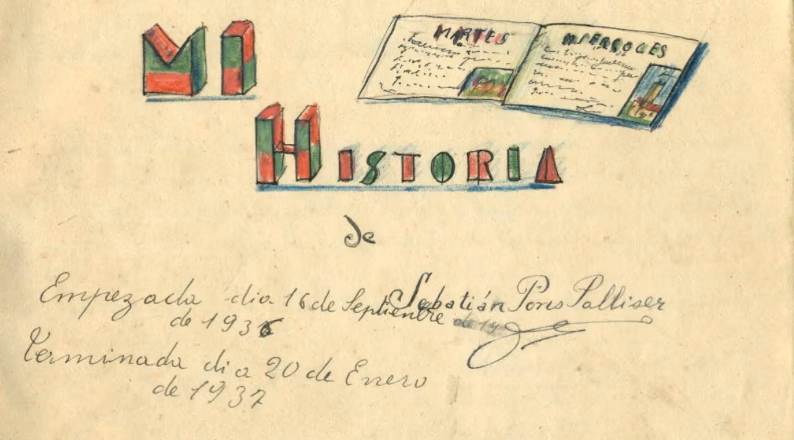 MI
MARTES MIERCOLES
HISTORIA
de
Sebatián Pons Palliser
Empezada dia 16 de Septienbre
de 1936
Terminada dia 20 de Enero
de 1937